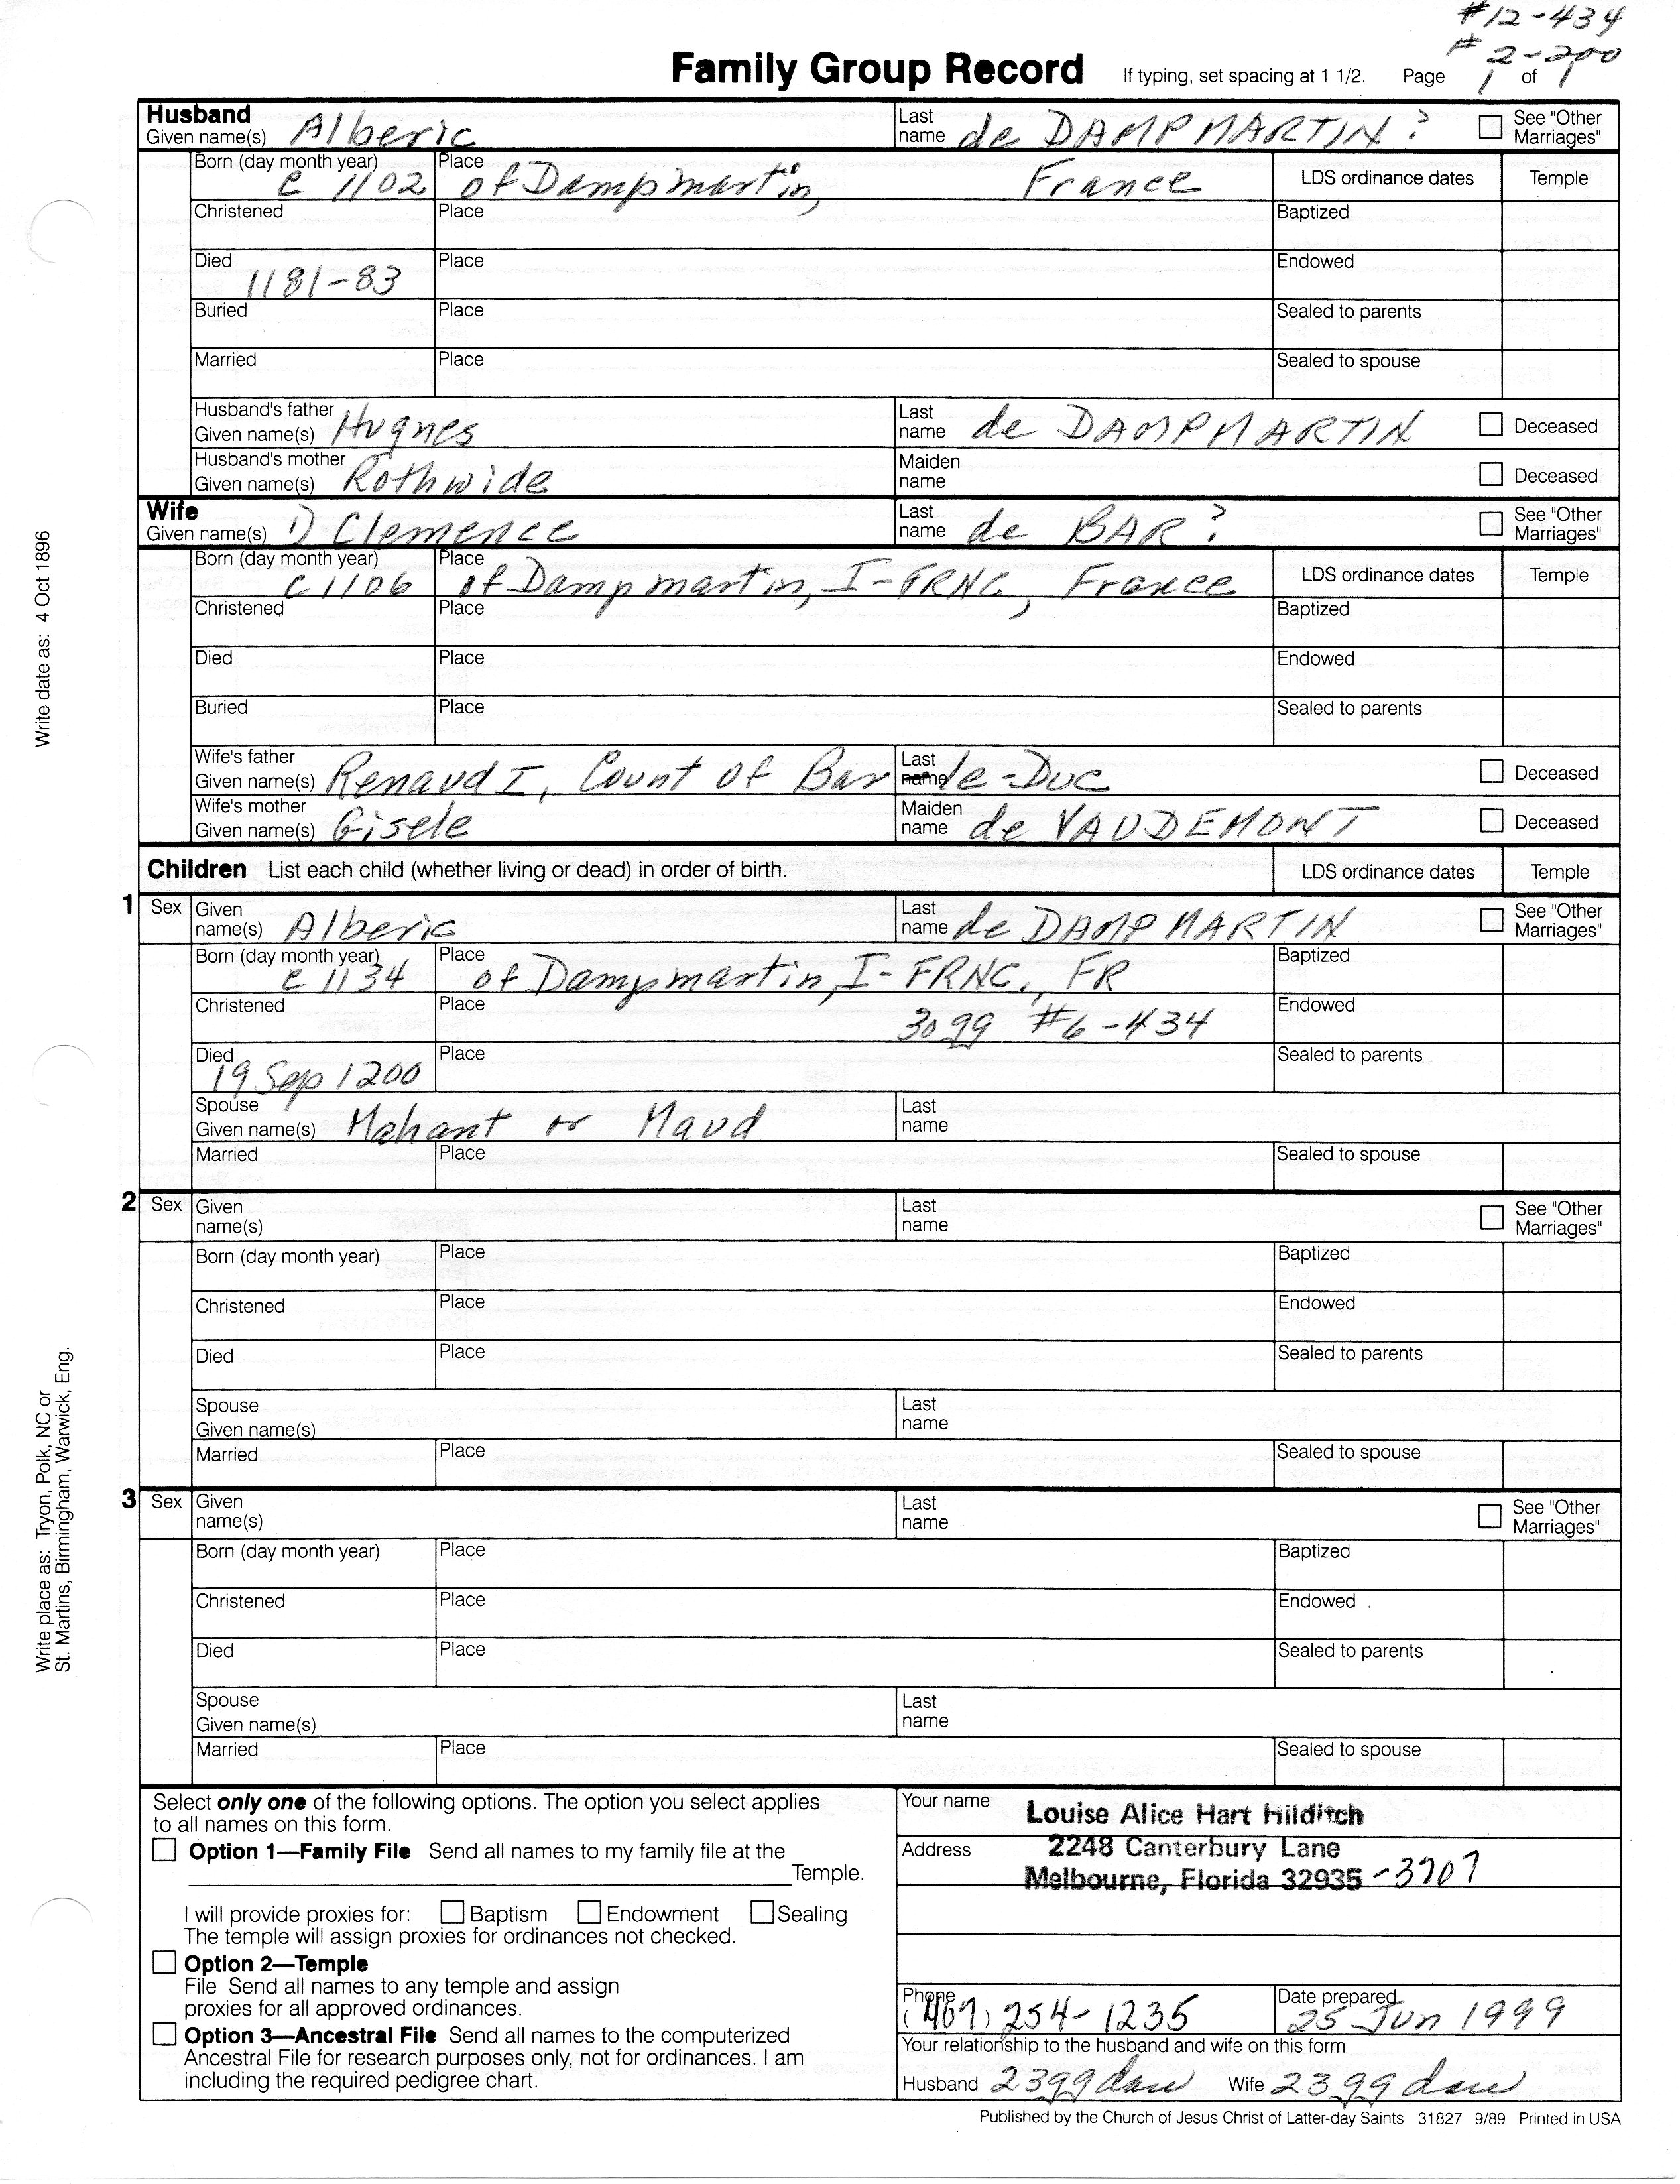 #12-434
# 2-200
Family Group Record If typing, set spacing at 1 1/2. Page 1 of 1
Husband
Given name(s) Alberic Last name de DAMPMARTIN? See "Other Marriages"
Born (day month year) c 1102 Place of Dampmartin, France LDS ordinance dates Temple
Christened Place Baptized
Died 1181-83 Place Endowed
Buried Place Sealed to parents
Married Place Sealed to spouse
Husband's father Given name(s) Hugnes Last name de DAMPMARTIN Deceased
Husband's mother Given name(s) Rothwide Maiden name Deceased
Wife
Given name(s) 1) Clemence Last name de BAR? See "Other Marriages"
Born (day month year) c 1106 Place of Dampmartin, I-FRNC, France LDS ordinance dates Temple
Christened Place Baptized
Died Place Endowed
Buried Place Sealed to parents
Wife's father Given name(s) Renaud I, Count of Bar Last name le-Duc Deceased
Wife's mother Given name(s) Gisele Maiden name de VAUDEMONT Deceased
Children List each child (whether living or dead) in order of birth. LDS ordinance dates Temple
1 Sex Given name(s) Alberic Last name de DAMPMARTIN See "Other Marriages"
Born (day month year) c 1134 Place of Dampmartin, I-FRNC., FR Baptized
Christened Place 30gg #6-434 Endowed
Died 19 Sep 1200 Place Sealed to parents
Spouse Given name(s) Mahant or Maud Last name
Married Place Sealed to spouse
2 Sex Given name(s) Last name See "Other Marriages"
Born (day month year) Place Baptized
Christened Place Endowed
Died Place Sealed to parents
Spouse Given name(s) Last name
Married Place Sealed to spouse
3 Sex Given name(s) Last name See "Other Marriages"
Born (day month year) Place Baptized
Christened Place Endowed
Died Place Sealed to parents
Spouse Given name(s) Last name
Married Place Sealed to spouse
Select only one of the following options. The option you select applies
to all names on this form.
Option 1—Family File Send all names to my family file at the
Temple.
I will provide proxies for: Baptism Endowment Sealing
The temple will assign proxies for ordinances not checked.
Option 2—Temple
File Send all names to any temple and assign
proxies for all approved ordinances.
Option 3—Ancestral File Send all names to the computerized
Ancestral File for research purposes only, not for ordinances. I am
including the required pedigree chart.
Your name Louise Alice Hart Hilditch
Address 2248 Canterbury Lane
Melbourne, Florida 32935-3707
Phone (407) 254-1235 Date prepared 25 Jun 1999
Your relationship to the husband and wife on this form
Husband 23gg dau Wife 23gg dau
Published by the Church of Jesus Christ of Latter-day Saints 31827 9/89 Printed in USA
Write date as: 4 Oct 1896
Write place as: Tryon, Polk, NC or
St. Martins, Birmingham, Warwick, Eng.